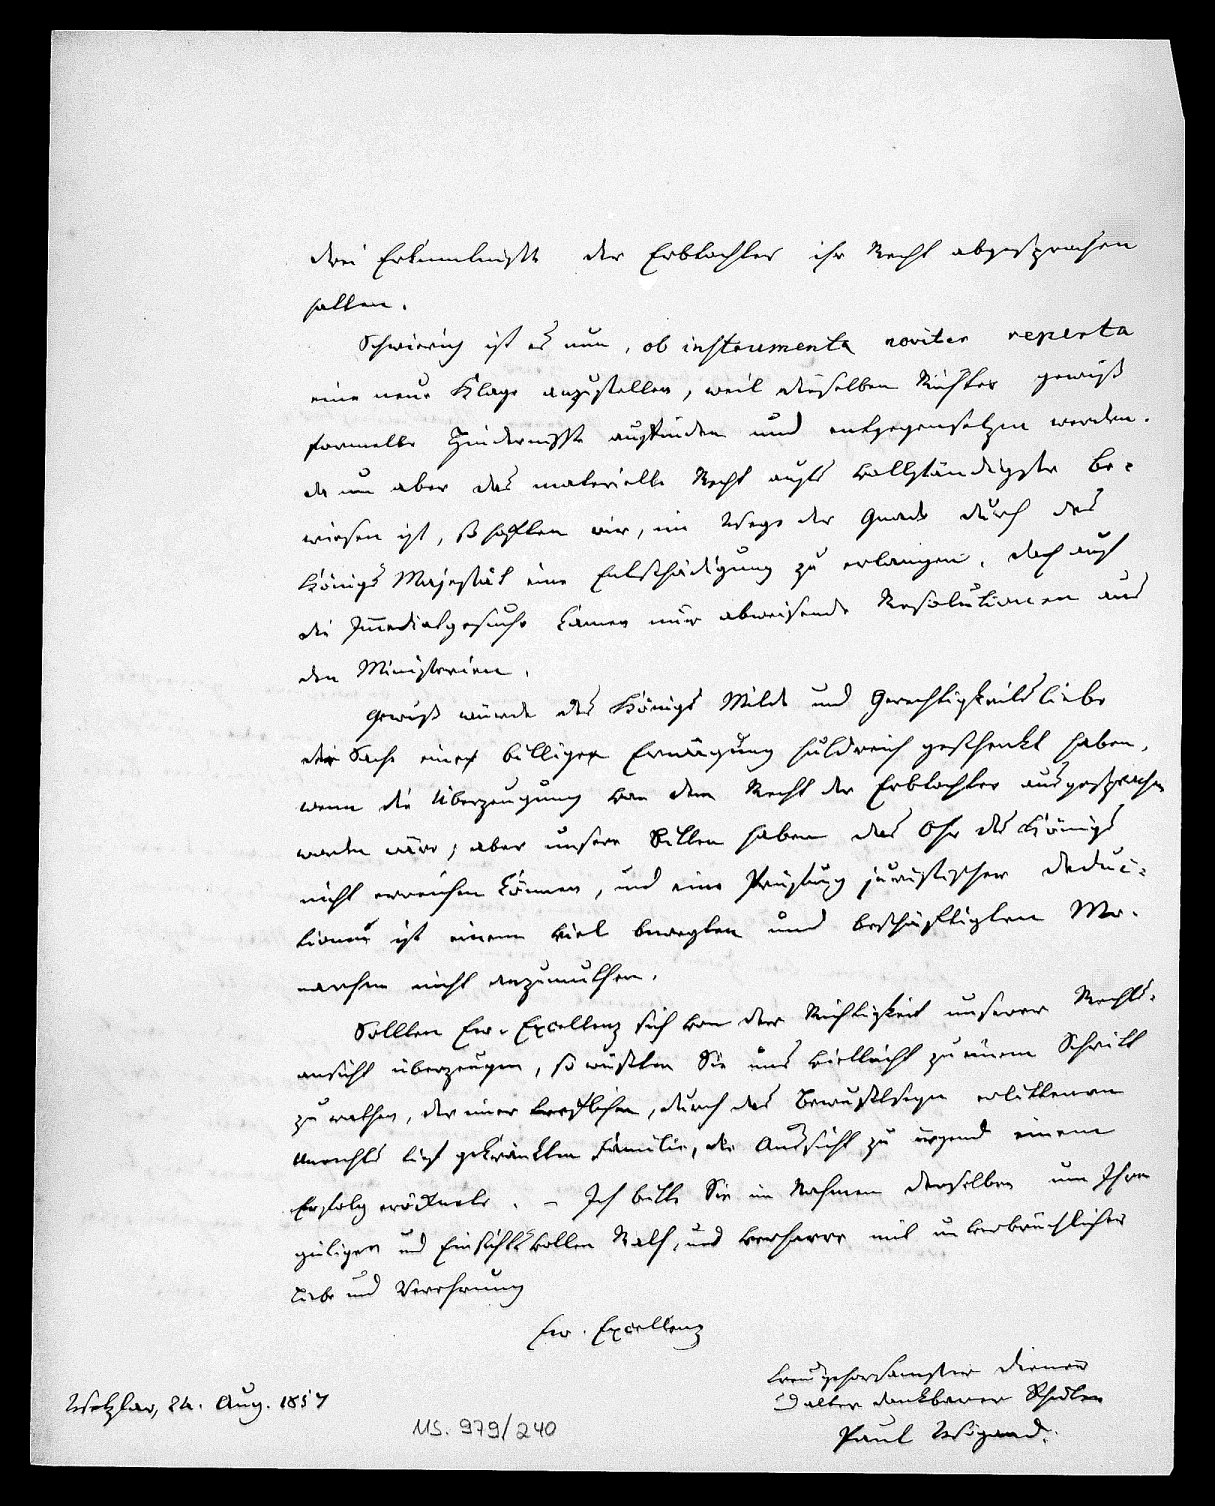 drei Erkenntnisse der Erbtochter ihr Recht abgesprochen
hatten.
Schwierig ist es nun, ob instrumenta noviter reperta
eine neue Klage anzustellen, weil dieselben Richter gewiß
formelle Hindernisse auffinden und entgegensetzen werden.
da nun aber das materielle Recht aufs vollständigste be-
wiesen ist, so hofften wir, im Wege der Gnade durch des
Königs Majestät eine Entschädigung zu erlangen. doch auf
die Immediatgesuche kamen nur abweisende Resolutionen aus
den Ministerien.
Gewiß würde des Königs Milde und Gerechtigkeitsliebe
der Sache einer billigen Erwägung huldreich geschenkt haben,
wenn die Überzeugung von dem Recht der Erbtochter ausgesprochen
worden wäre; aber unsere Bitten haben das Ohr des Königs
nicht erreichen können, und eine Prüfung juristischer Deduc-
tionen ist einem viel bewegten und beschäftigten Mo-
narchen nicht anzumuthen.
Sollten Ew. Excellenz sich von der Richtigkeit unserer Rechts-
ansicht überzeugen, so wüßten Sie uns vielleicht zu einem Schritt
zu rathen, der einer trefflichen, durch das Bewußtseyn erlittenen
Unrechts tief gekränkten Familie, die Aussicht zu irgend einem
Erfolg eröffnete. – Ich bitte Sie im Nahmen derselben um Ihren
gütigen und einsichtsvollen Rath, und verharre mit unverbrüchlicher
Liebe und Verehrung
Ew. Excellenz
treugehorsamster Diener
und alter dankbarer Schüler
Paul Wigand.
Wetzlar, 24. Aug. 1857
MS. 979/240